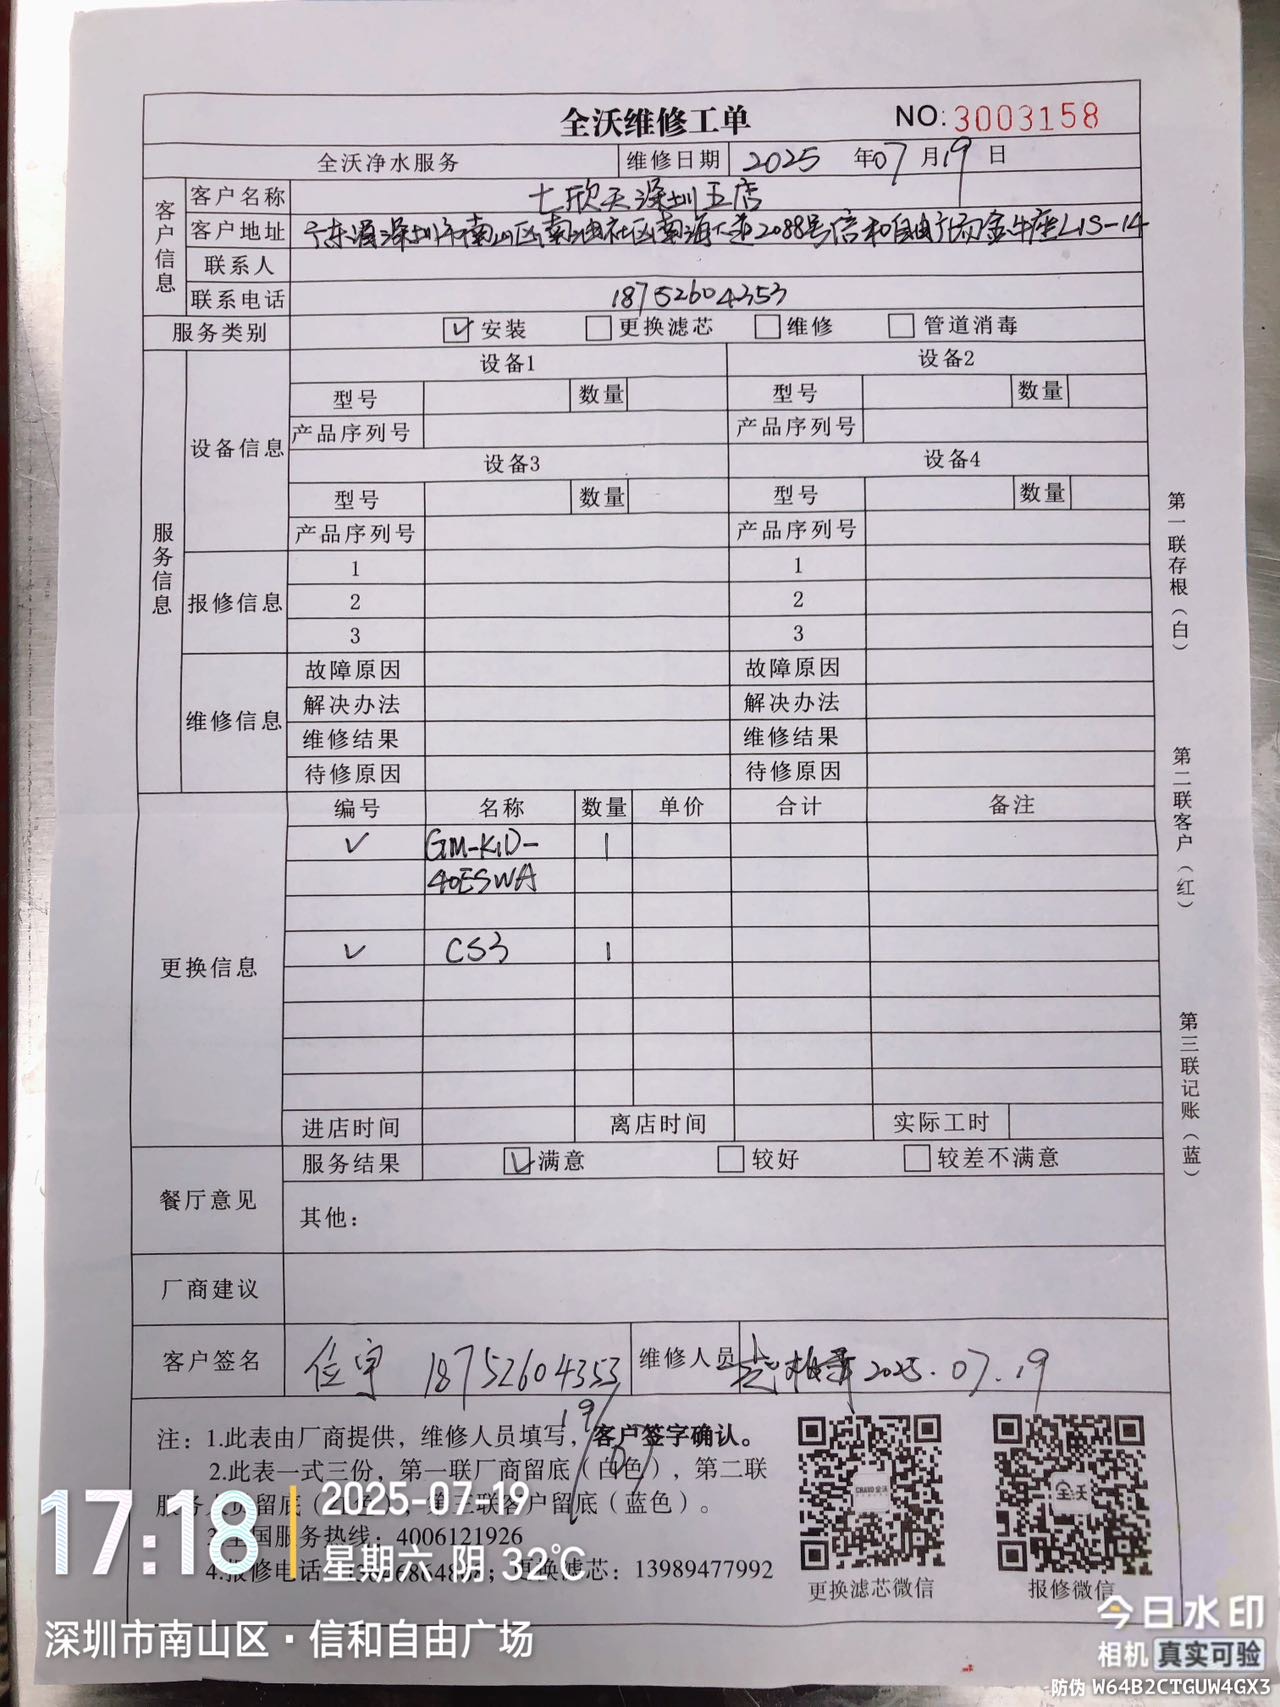 全沃维修工单 NO:3003158
全沃净水服务 维修日期 2025 年07月19日
客户信息
客户名称 七欣天深圳五店
客户地址 广东省深圳市南山区南油社区南海大道2088号信和自由广场金牛座L1S-14
联系人
联系电话 18752604353
服务类别 安装 更换滤芯 维修 管道消毒
服务信息
设备信息
设备1 设备2
型号 数量 型号 数量
产品序列号 产品序列号
设备3 设备4
型号 数量 型号 数量
产品序列号 产品序列号
报修信息
1 1
2 2
3 3
维修信息
故障原因 故障原因
解决办法 解决办法
维修结果 维修结果
待修原因 待修原因
更换信息
编号 名称 数量 单价 合计 备注
✓ GM-K1D- 1
40ESWA
✓ CS3 1
进店时间 离店时间 实际工时
餐厅意见
服务结果 满意 较好 较差不满意
其他：
厂商建议
客户签名 18752604353 维修人员 2025.07.19
19/07
注：1.此表由厂商提供，维修人员填写，客户签字确认。
2.此表一式三份，第一联厂商留底（白色），第二联
服务人员留底（红色），第三联客户留底（蓝色）。
3.全国服务热线：4006121926
4.报修电话 ；更换滤芯：13989477992
CHAVO全沃
全沃
更换滤芯微信 报修微信
第一联存根（白）
第二联客户（红）
第三联记账（蓝）
17:18
2025-07-19
星期六 阴 32℃
深圳市南山区·信和自由广场
今日水印
相机 真实可验
防伪 W64B2CTGUW4GX3